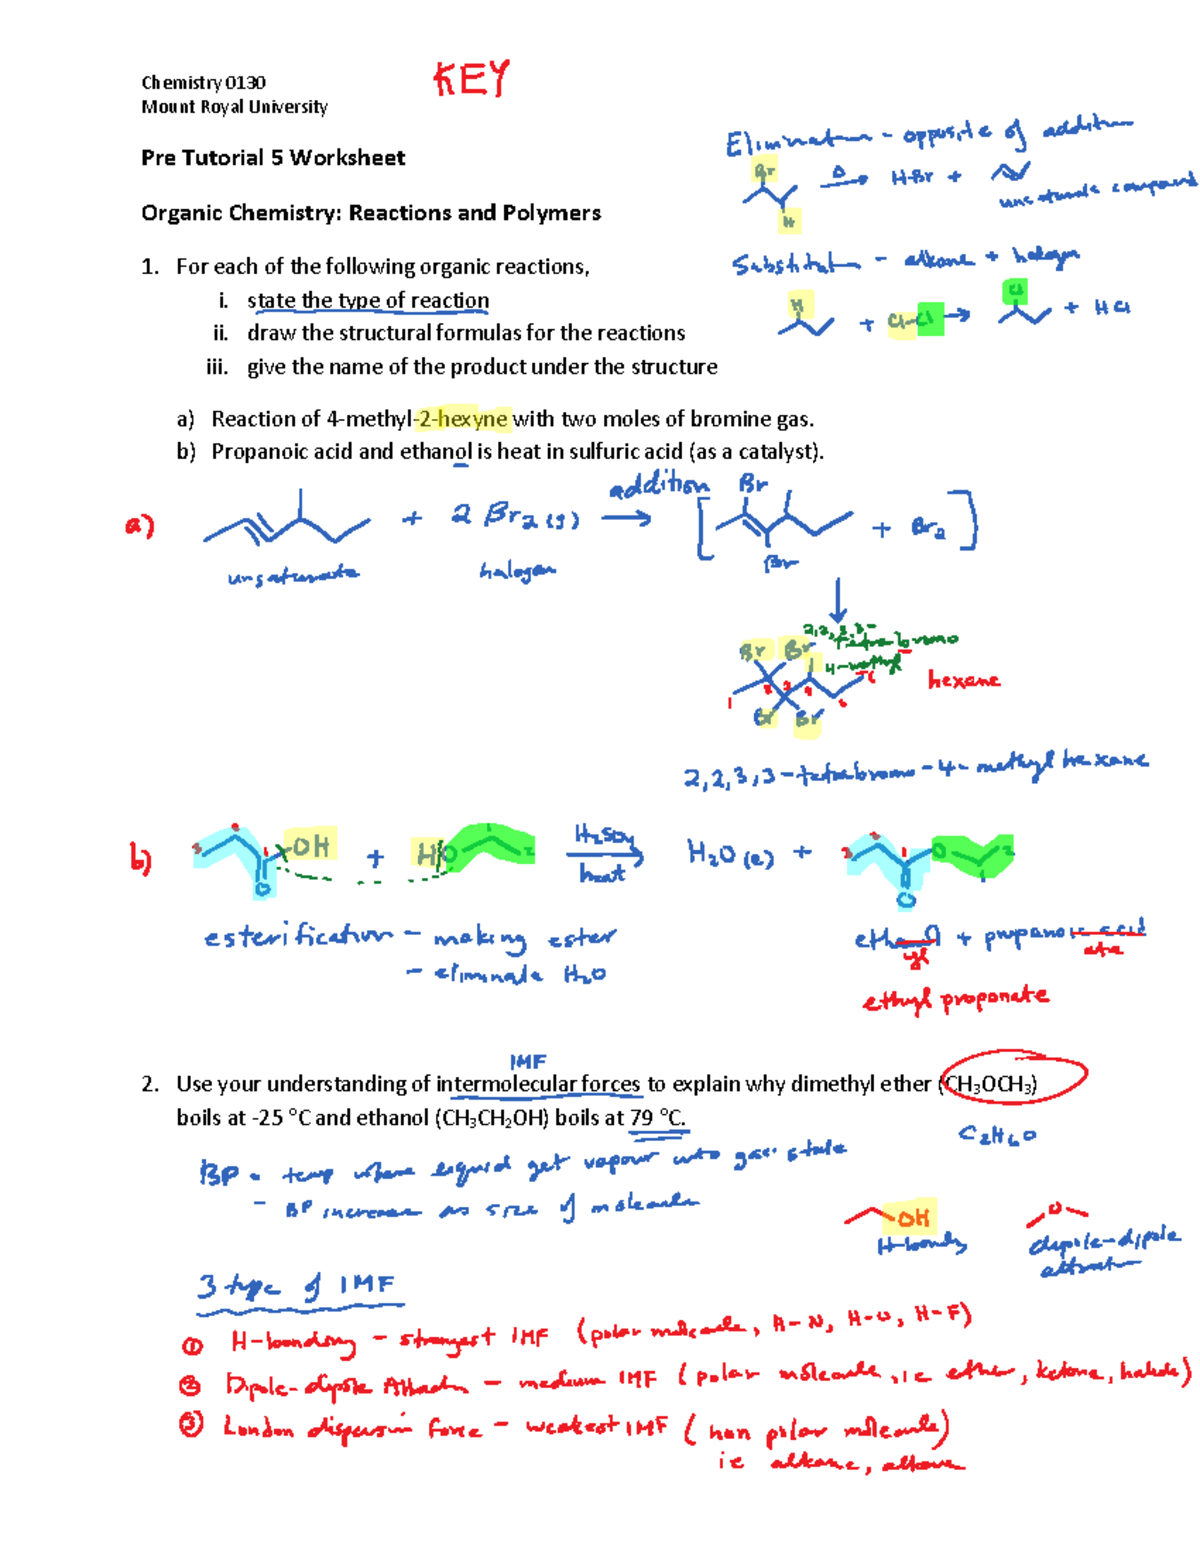 Chemistry 0130
KEY
Mount Royal University
Pre Tutorial 5 Worksheet
Elimination - opposite of addition
Br
H
Δ
H-Br +
unsaturate compound
Organic Chemistry: Reactions and Polymers
Substitution - alkane + halogen
H
+ Cl-Cl →
Cl
+ HCl
1. For each of the following organic reactions,
i. state the type of reaction
ii. draw the structural formulas for the reactions
iii. give the name of the product under the structure
a) Reaction of 4-methyl-2-hexyne with two moles of bromine gas.
b) Propanoic acid and ethanol is heat in sulfuric acid (as a catalyst).
a)
+ 2 Br2 (g)
addition
→
[
Br
Br
+ Br2 ]
unsaturate
halogen
2,2,3,3-
tetrabromo
4-methyl
hexane
Br Br
1 2 3 4 5 6
Br Br
2,2,3,3-tetrabromo-4-methyl hexane
b)
3 2 1 OH
O
+
HO 1 2
H2SO4
heat
H2O (l) +
3 2 1 O 2
O 1
esterification - making ester
- eliminate H2O
ethanol + propanoic acid
yl
ate
ethyl proponate
IMF
2. Use your understanding of intermolecular forces to explain why dimethyl ether (CH3OCH3)
boils at -25 °C and ethanol (CH3CH2OH) boils at 79 °C.
C2H6O
BP = temp where liquid get vapour into gas state
- BP increase as size of molecule
OH
H-bonding
O
dipole-dipole
attraction
3 type of IMF
① H-bonding - strongest IMF (polar molecule, H-N, H-O, H-F)
② Dipole-dipole Attraction - medium IMF (polar molecule, ie ether, ketone, halide)
③ London dispersion force - weakest IMF (non polar molecule)
ie alkane, alkene